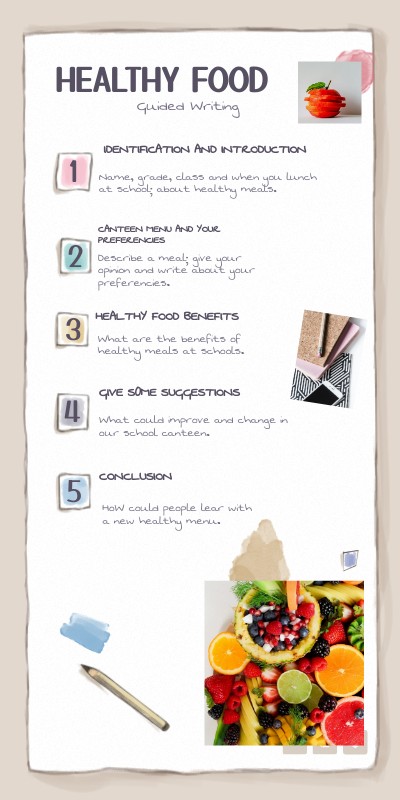 HEALTHY FOOD
Guided Writing
IDENTIFICATION AND INTRODUCTION
1
Name, grade, class and when you lunch
at school; about healthy meals.
CANTEEN MENU AND YOUR
PREFERENCIES
2
Describe a meal; give your
opinion and write about your
preferencies.
3
HEALTHY FOOD BENEFITS
What are the benefits of
healthy meals at schools.
4
GIVE SOME SUGGESTIONS
What could improve and change in
our school canteen.
5
CONCLUSION
HoW could people lear with
a new healthy menu.